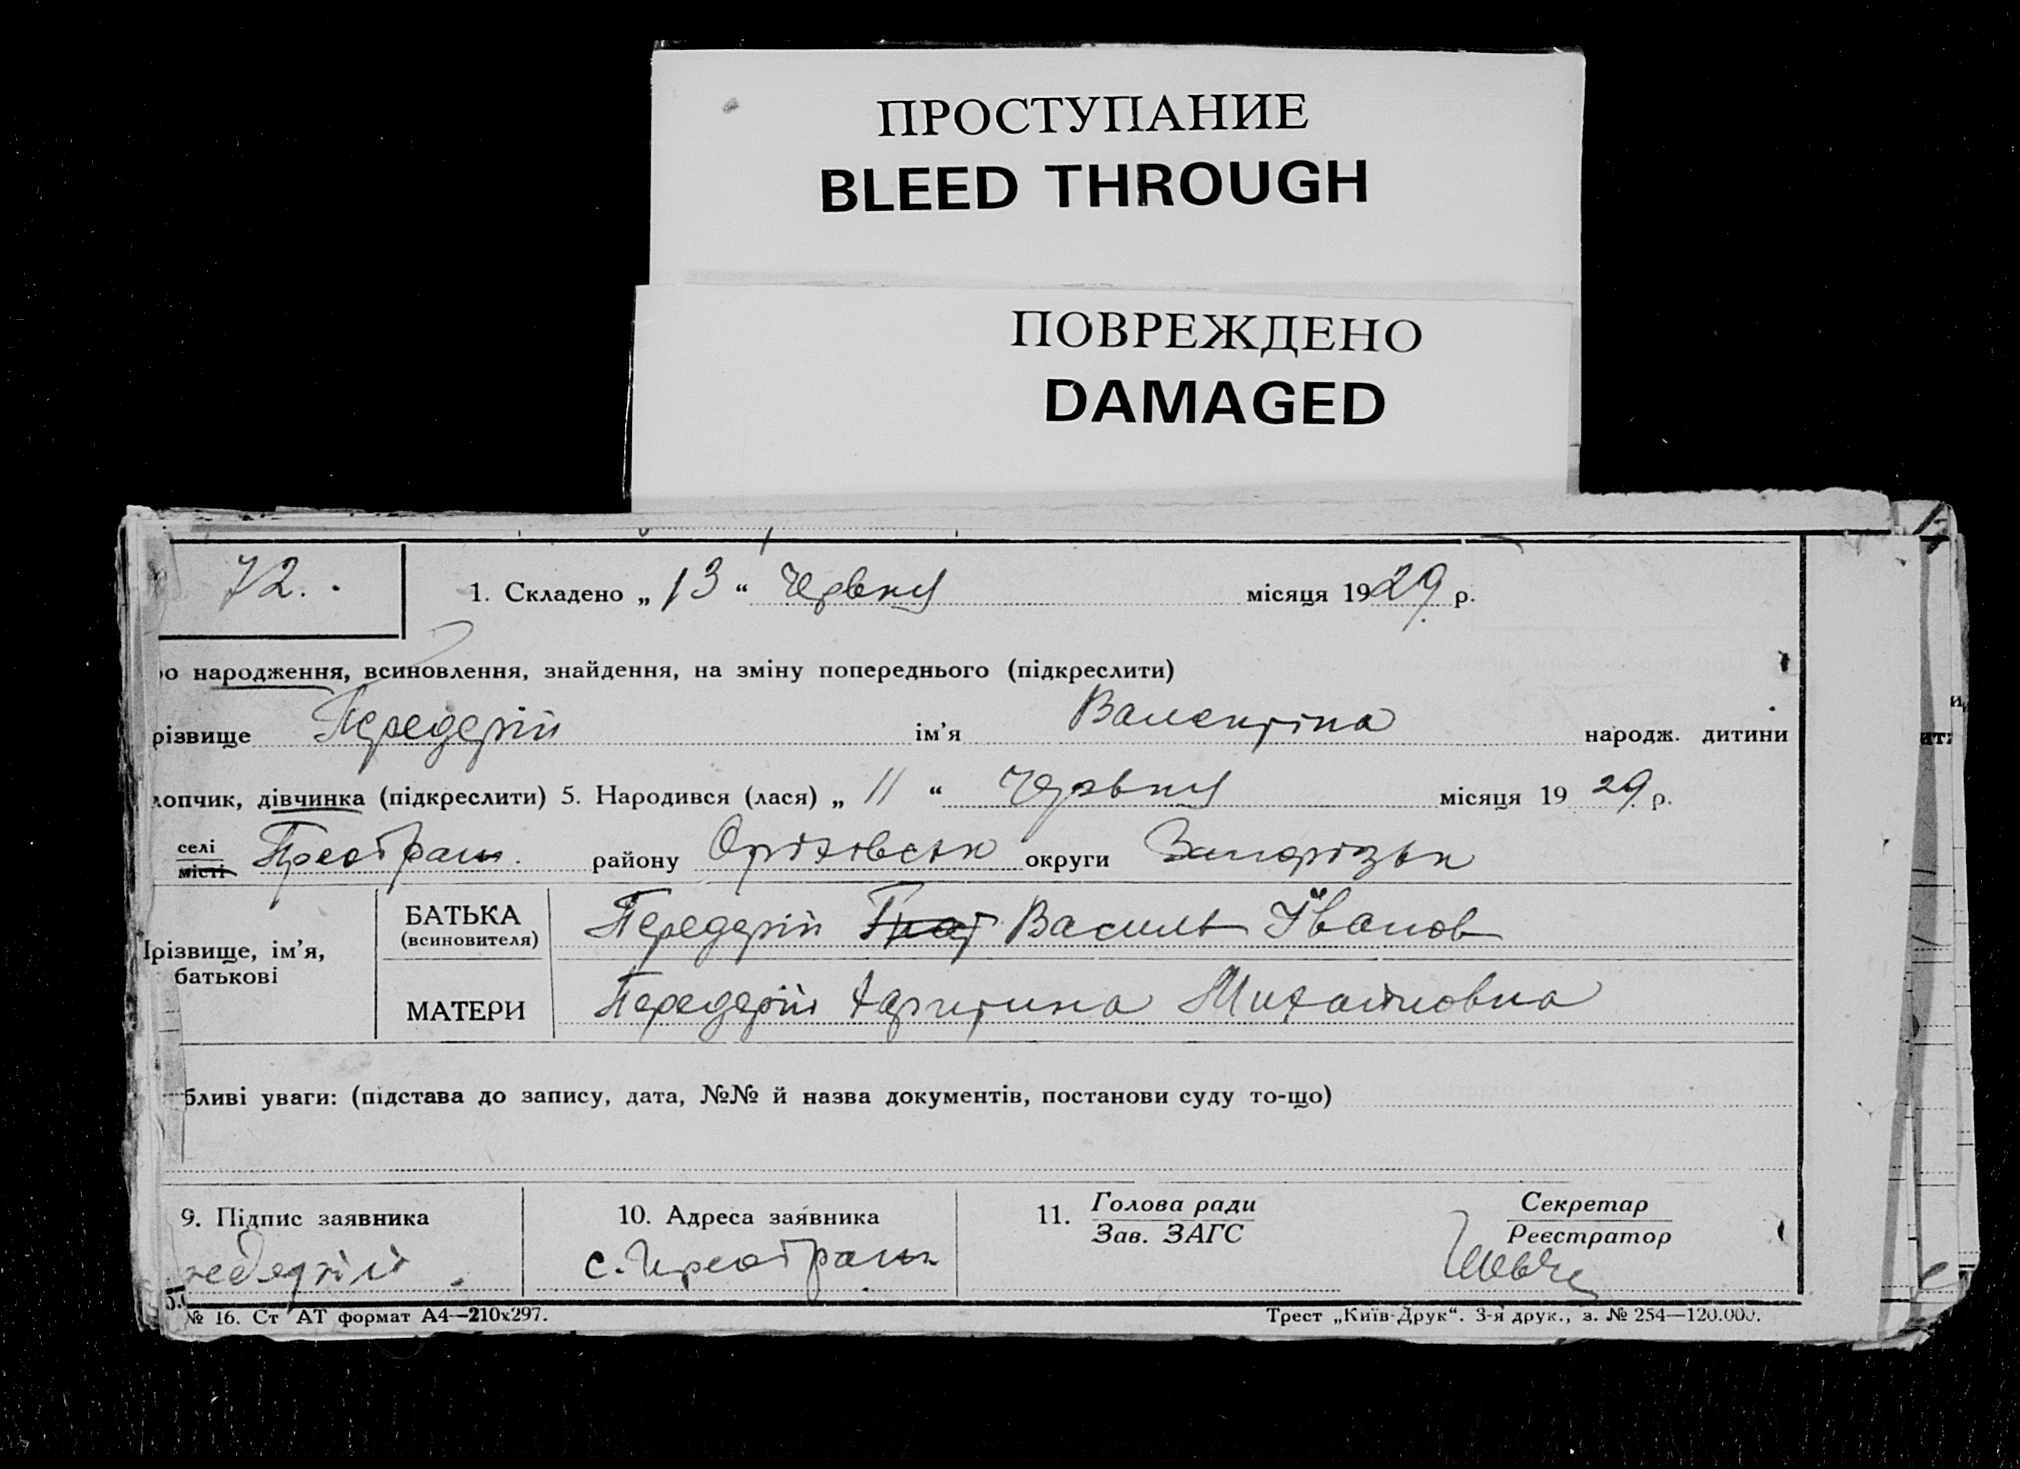 ПРОСТУПАНИЕ
BLEED THROUGH
ПОВРЕЖДЕНО
DAMAGED
72.
1. Складено „ 13 “ Червня місяця 1929 р.
ро народження, всиновлення, знайдення, на зміну попереднього (підкреслити)
різвище Передерій ім’я Валентіна народж. дитини
лопчик, дівчинка (підкреслити) 5. Народився (лася) „ 11 “ Червня місяця 1929 р.
селі
місті Преображ. району Оріховськ округи Запорізьк
БАТЬКА
(всиновителя)
Передерій Василь Іванов
Прізвище, ім’я,
батькові
МАТЕРИ
Передерій Харитина Михайловна
бливі уваги: (підстава до запису, дата, №№ й назва документів, постанови суду то-що)
9. Підпис заявника
10. Адреса заявника
11. Голова ради
Зав. ЗАГС
Секретар
Реєстратор
с. Преображ
№ 16. Ст АТ формат А4—210х297.
Трест „Київ-Друк“. 3-я друк., з. № 254—120.000.